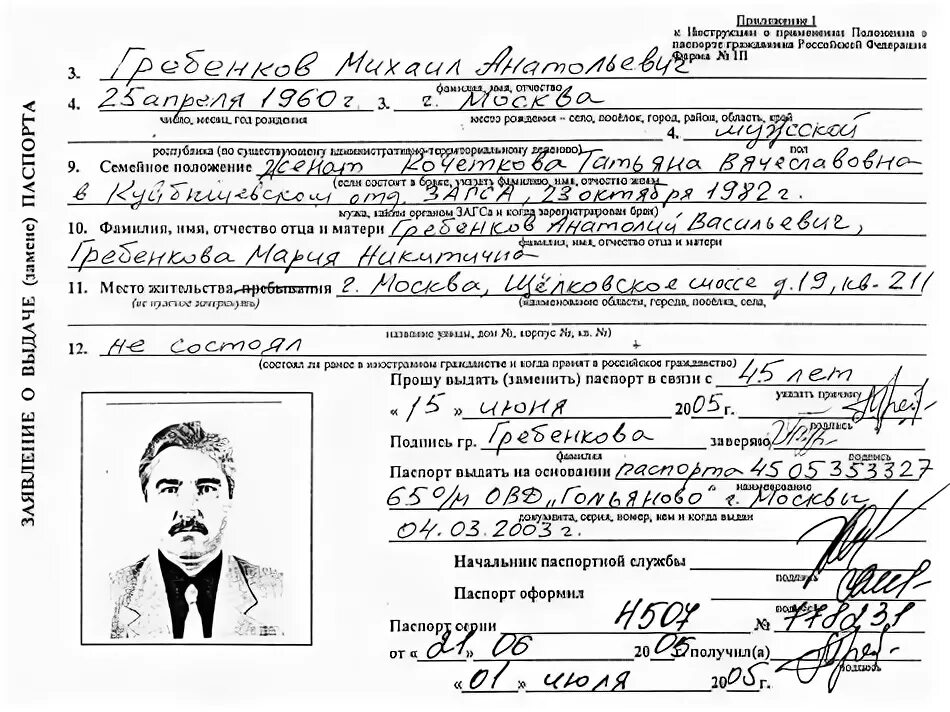 Приложение 1
к Инструкции о применении Положения о
паспорте гражданина Российской Федерации
Форма № 1П
ЗАЯВЛЕНИЕ О ВЫДАЧЕ (замене) ПАСПОРТА
3. Гребенков Михаил Анатольевич
фамилия, имя, отчество
4. 25 апреля 1960 г. 3. г. Москва
число, месяц, год рождения место рождения – село, посёлок, город, район, область, край
4. мужской
республика (по существующему административно-территориальному делению) пол
9. Семейное положение женат Кочеткова Татьяна Вячеславовна
(если состоит в браке, указать фамилию, имя, отчество жены
в Куйбышевском отд. ЗАГСА, 23 октября 1982 г.
мужа, каким органом ЗАГСа и когда зарегистрирован брак)
10. Фамилия, имя, отчество отца и матери Гребенков Анатолий Васильевич,
фамилия, имя, отчество отца и матери
Гребенкова Мария Никитична
11. Место жительства, пребывания г. Москва, Щёлковское шоссе д.19, кв. 211
(не нужное зачеркнуть) (наименование области, города, посёлка, села,
название улицы, дом №, корпус №, кв. №)
12. не состоял
(состоял ли ранее в иностранном гражданстве и когда принят в российское гражданство)
Прошу выдать (заменить) паспорт в связи с 45 лет
указать причину
« 15 » июня 2005 г.
подпись
Подпись гр. Гребенкова заверяю
фамилия подпись
Паспорт выдать на основании паспорта 45 05 353327
наименование
65 о/м ОВД „Гольяново" г. Москвы
документа, серия, номер, кем и когда выдан
04.03.2003 г.
Начальник паспортной службы
подпись
Паспорт оформил
подпись
Паспорт серии 4507 № 778231
от « 21 » 06 2005 г. получил(а)
подпись
« 01 » июля 2005 г.